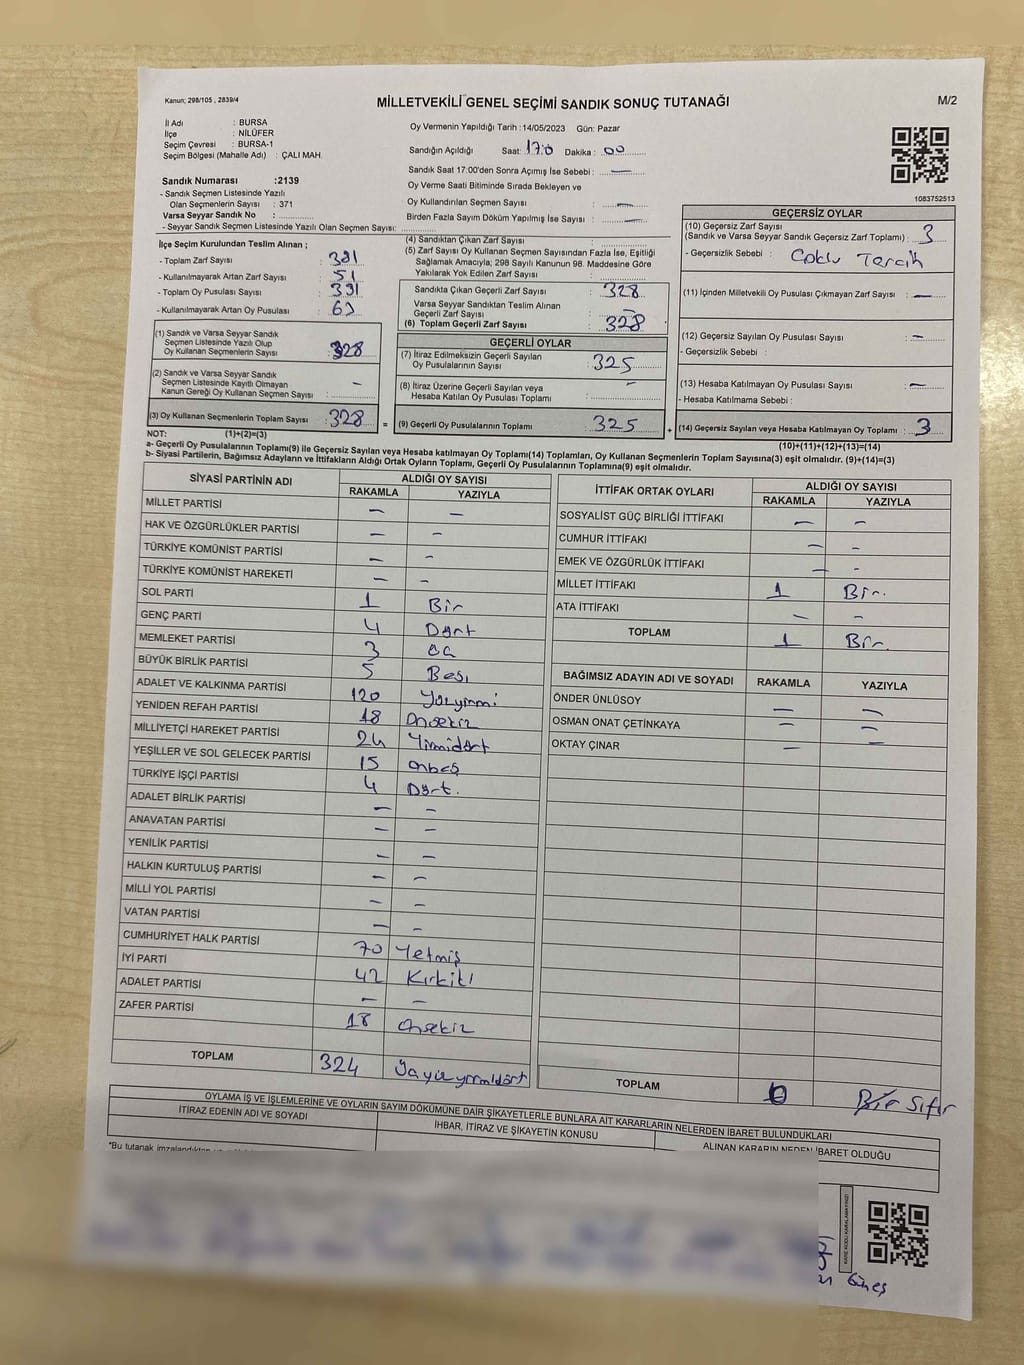 Kanun; 298/105 , 2839/4
MİLLETVEKİLİ GENEL SEÇİMİ SANDIK SONUÇ TUTANAĞI
M/2
İl Adı : BURSA
İlçe : NİLÜFER
Seçim Çevresi : BURSA-1
Seçim Bölgesi (Mahalle Adı) : ÇALI MAH.
Sandık Numarası :2139
- Sandık Seçmen Listesinde Yazılı
Olan Seçmenlerin Sayısı : 371
Varsa Seyyar Sandık No :
- Seyyar Sandık Seçmen Listesinde Yazılı Olan Seçmen Sayısı:
Oy Vermenin Yapıldığı Tarih :14/05/2023 Gün: Pazar
Sandığın Açıldığı Saat: 17:0 Dakika : 00
Sandık Saat 17:00'den Sonra Açımış İse Sebebi : —
Oy Verme Saati Bitiminde Sırada Bekleyen ve
Oy Kullandırılan Seçmen Sayısı : —
Birden Fazla Sayım Döküm Yapılmış İse Sayısı : —
1083752513
İlçe Seçim Kurulundan Teslim Alınan ;
- Toplam Zarf Sayısı : 391
- Kullanılmayarak Artan Zarf Sayısı : 51
- Toplam Oy Pusulası Sayısı : 391
- Kullanılmayarak Artan Oy Pusulası : 63
(1) Sandık ve Varsa Seyyar Sandık
Seçmen Listesinde Yazılı Olup
Oy Kullanan Seçmenlerin Sayısı : 328
(2) Sandık ve Varsa Seyyar Sandık
Seçmen Listesinde Kayıtlı Olmayan
Kanun Gereği Oy Kullanan Seçmen Sayısı : —
(3) Oy Kullanan Seçmenlerin Toplam Sayısı : 328
(4) Sandıktan Çıkan Zarf Sayısı :
(5) Zarf Sayısı Oy Kullanan Seçmen Sayısından Fazla İse, Eşitliği
Sağlamak Amacıyla; 298 Sayılı Kanunun 98. Maddesine Göre
Yakılarak Yok Edilen Zarf Sayısı :
Sandıkta Çıkan Geçerli Zarf Sayısı : 328
Varsa Seyyar Sandıktan Teslim Alınan
Geçerli Zarf Sayısı : —
(6) Toplam Geçerli Zarf Sayısı : 328
GEÇERLİ OYLAR
(7) İtiraz Edilmeksizin Geçerli Sayılan
Oy Pusulalarının Sayısı : 325
(8) İtiraz Üzerine Geçerli Sayılan veya
Hesaba Katılan Oy Pusulası Toplamı : —
= (9) Geçerli Oy Pusulalarının Toplamı : 325
GEÇERSİZ OYLAR
(10) Geçersiz Zarf Sayısı
(Sandık ve Varsa Seyyar Sandık Geçersiz Zarf Toplamı) : 3
- Geçersizlik Sebebi : Çoklu Tercih
(11) İçinden Milletvekili Oy Pusulası Çıkmayan Zarf Sayısı : —
(12) Geçersiz Sayılan Oy Pusulası Sayısı : —
- Geçersizlik Sebebi :
(13) Hesaba Katılmayan Oy Pusulası Sayısı : —
- Hesaba Katılmama Sebebi :
+ (14) Geçersiz Sayılan veya Hesaba Katılmayan Oy Toplamı : 3
NOT: (1)+(2)=(3)
(10)+(11)+(12)+(13)=(14)
a- Geçerli Oy Pusulalarının Toplamı(9) ile Geçersiz Sayılan veya Hesaba katılmayan Oy Toplamı(14) Toplamları, Oy Kullanan Seçmenlerin Toplam Sayısına(3) eşit olmalıdır. (9)+(14)=(3)
b- Siyasi Partilerin, Bağımsız Adayların ve İttifakların Aldığı Ortak Oyların Toplamı, Geçerli Oy Pusulalarının Toplamına(9) eşit olmalıdır.
SİYASİ PARTİNİN ADI
ALDIĞI OY SAYISI
RAKAMLA YAZIYLA
MİLLET PARTİSİ — —
HAK VE ÖZGÜRLÜKLER PARTİSİ — —
TÜRKİYE KOMÜNİST PARTİSİ — —
TÜRKİYE KOMÜNİST HAREKETİ — —
SOL PARTİ 1 Bir
GENÇ PARTİ 4 Dört
MEMLEKET PARTİSİ 3 üç
BÜYÜK BİRLİK PARTİSİ 5 Beş
ADALET VE KALKINMA PARTİSİ 120 Yüzyirmi
YENİDEN REFAH PARTİSİ 18 Onsekiz
MİLLİYETÇİ HAREKET PARTİSİ 24 Yirmidört
YEŞİLLER VE SOL GELECEK PARTİSİ 15 Onbeş
TÜRKİYE İŞÇİ PARTİSİ 4 Dört.
ADALET BİRLİK PARTİSİ — —
ANAVATAN PARTİSİ — —
YENİLİK PARTİSİ — —
HALKIN KURTULUŞ PARTİSİ — —
MİLLİ YOL PARTİSİ — —
VATAN PARTİSİ — —
CUMHURİYET HALK PARTİSİ 70 Yetmiş
İYİ PARTİ 42 Kırkiki
ADALET PARTİSİ — —
ZAFER PARTİSİ 18 Onsekiz
TOPLAM 324
İTTİFAK ORTAK OYLARI
ALDIĞI OY SAYISI
RAKAMLA YAZIYLA
SOSYALİST GÜÇ BİRLİĞİ İTTİFAKI — —
CUMHUR İTTİFAKI — —
EMEK VE ÖZGÜRLÜK İTTİFAKI — —
MİLLET İTTİFAKI 1 Bir.
ATA İTTİFAKI — —
TOPLAM 1 Bir.
BAĞIMSIZ ADAYIN ADI VE SOYADI RAKAMLA YAZIYLA
ÖNDER ÜNLÜSOY — —
OSMAN ONAT ÇETİNKAYA — —
OKTAY ÇINAR — —
TOPLAM 0 Bir Sıfır
OYLAMA İŞ VE İŞLEMLERİNE VE OYLARIN SAYIM DÖKÜMÜNE DAİR ŞİKAYETLERLE BUNLARA AİT KARARLARIN NELERDEN İBARET BULUNDUKLARI
İTİRAZ EDENİN ADI VE SOYADI
İHBAR, İTİRAZ VE ŞİKAYETİN KONUSU
ALINAN KARARIN NEDEN İBARET OLDUĞU
"Bu tutanak imzalandıktan
Güneş